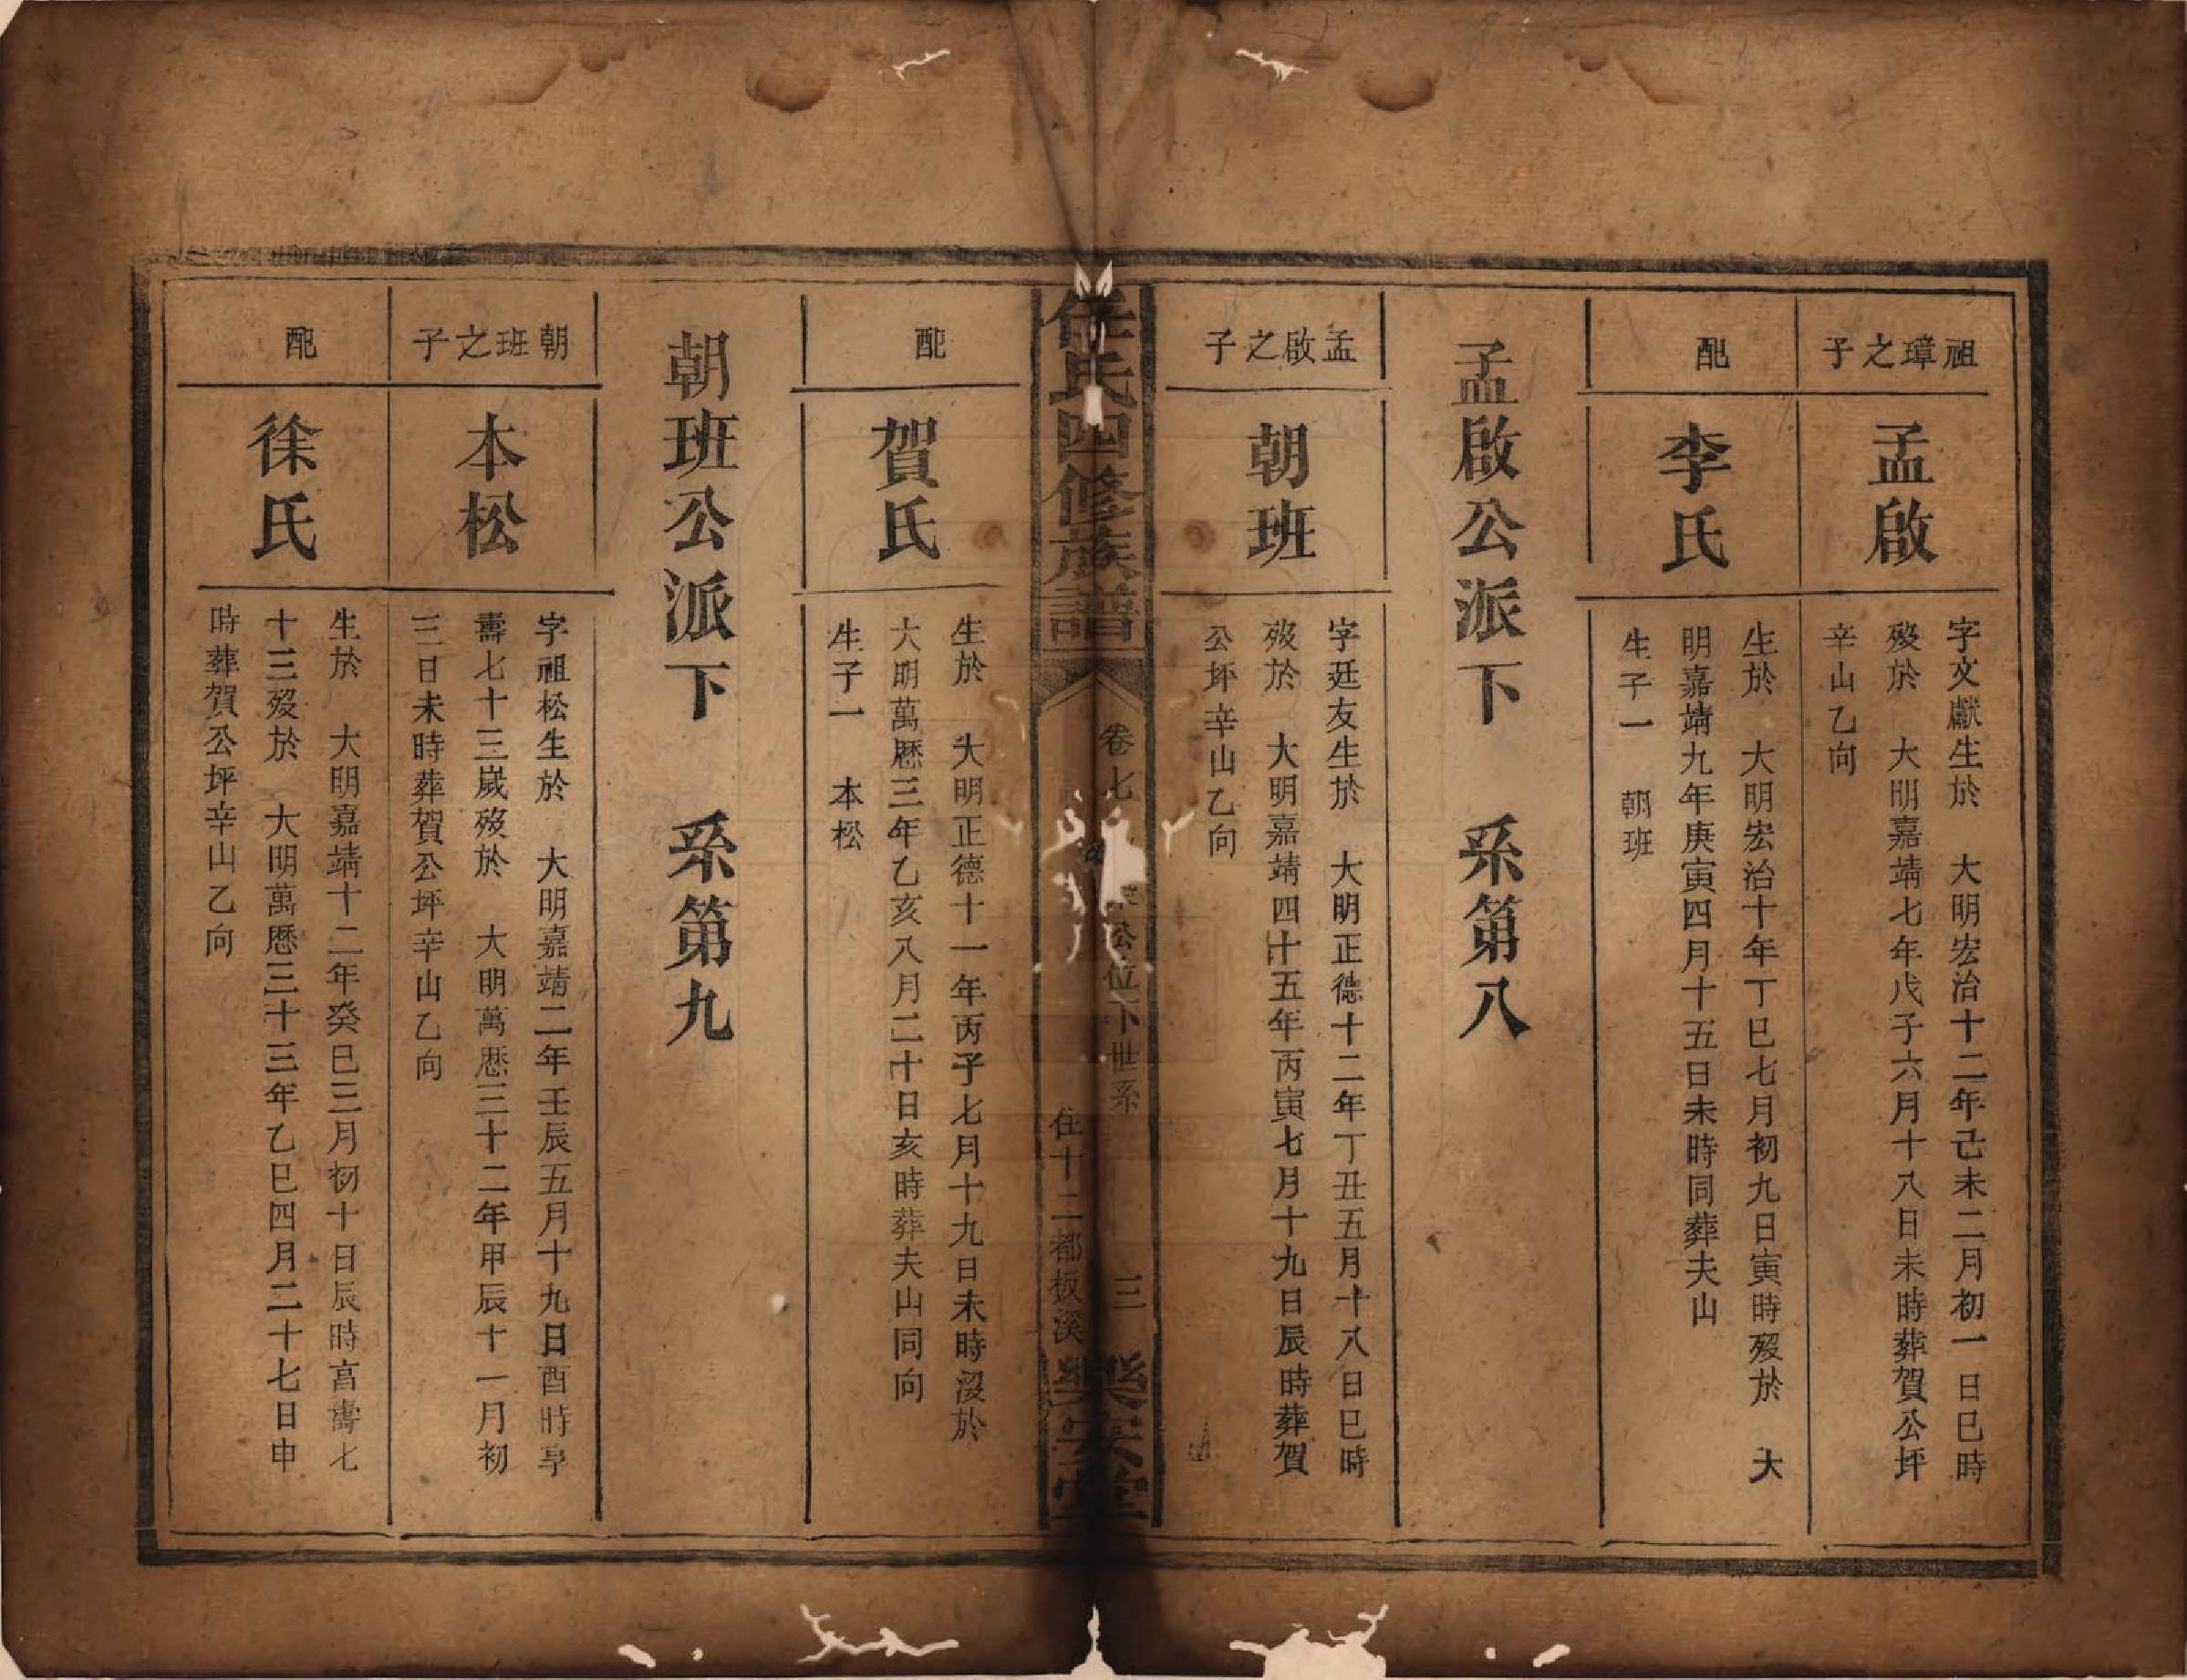 祖璋之子
孟啟
字文獻生於　大明宏治十二年己未二月初一日巳時
歿於　大明嘉靖七年戊子六月十八日未時葬賀公坪
辛山乙向
配
李氏
生於　大明宏治十年丁巳七月初九日寅時歿於　大
明嘉靖九年庚寅四月十五日未時同葬夫山
生子一　朝班
孟啟公派下　系第八
孟啟之子
朝班
字廷友生於　大明正德十二年丁丑五月十八日巳時
歿於　大明嘉靖四十五年丙寅七月十九日辰時葬賀
公坪辛山乙向
任氏四修族譜
卷七
公位下世系
住十二都板溪
三
樂安堂
配
賀氏
生於　大明正德十一年丙子七月十九日未時沒於
大明萬曆三年乙亥八月二十日亥時葬夫山同向
生子一　本松
朝班公派下　系第九
朝班之子
本松
字祖松生於　大明嘉靖二年壬辰五月十九日酉時享
壽七十三歲歿於　大明萬曆三十二年甲辰十一月初
三日未時葬賀公坪辛山乙向
配
徐氏
生於　大明嘉靖十二年癸巳三月初十日辰時高壽七
十三歿於　大明萬曆三十三年乙巳四月二十七日申
時葬賀公坪辛山乙向